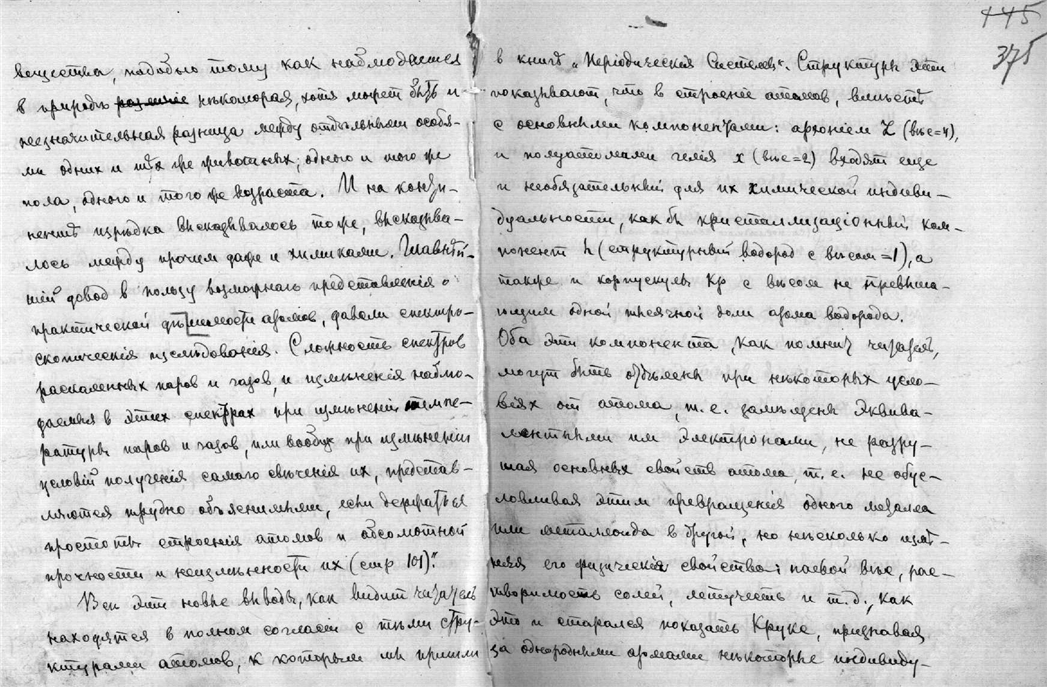 вещества, подобью тому как наблюдается
в природѣ различіе нѣкоторая, хотя может быть и
незначительная разница между отдѣльными особя-
ми одних и тѣх же животных, одного и того же
пола, одного и того же возраста. И на конти-
нентѣ изрѣдка высказывалось тоже, высказыва-
лось между прочим даже и химиками. Главнѣй-
шій довод в пользу возможнаго представленія о
практической дѣлимости атомов, давали спектро-
скопическія изслѣдованія. Сложность спектров
раскаленных паров и газов, и измѣненія наблю-
даемыя в этих спектрах при измѣненіи темпе-
ратуры паров и газов, или вообще при измѣненіи
условій полученія самаго свѣченія их, представ-
ляются трудно объяснимыми, если держаться
простоты строенія атомов и абсолютной
прочности и неизмѣнности их (стр 101)."
Все эти новые выводы, как видит читатель
находятся в полном согласіи с тѣми стру-
ктурами атомов, к которым мы пришли
145
375
в книгѣ „Періодическія Системы". Структуры эти
показывают, что в строеніе атомов, вмѣстѣ
с основными компонентами: архоніем Z (вѣс=4),
и полуатомами гелія x (вѣс=2) входят еще
и необязательный для их химической индиви-
дуальности, как бы кристаллизаціонный ком-
понент h (структурный водород с вѣсом =1), а
также и корпускулы Кр с вѣсом не превыша-
ющим одной тысячной доли атома водорода.
Оба эти компонента, как помнит читатель,
могут быть отъѣмлены при некоторых усло-
віях от атома, т.е. замѣщены эквива-
лентными им электронами, не разру-
шая основных свойств атома, т.е. не обус-
ловливая этим превращенія одного металла
или металлоида в другой, но нѣсколько измѣ-
няя его физическія свойства: паевой вѣс, рас-
творимость солей, летучесть и т.д., как
это и старался показать Крукс, признавая
за однородными атомами нѣкоторые индивиду-